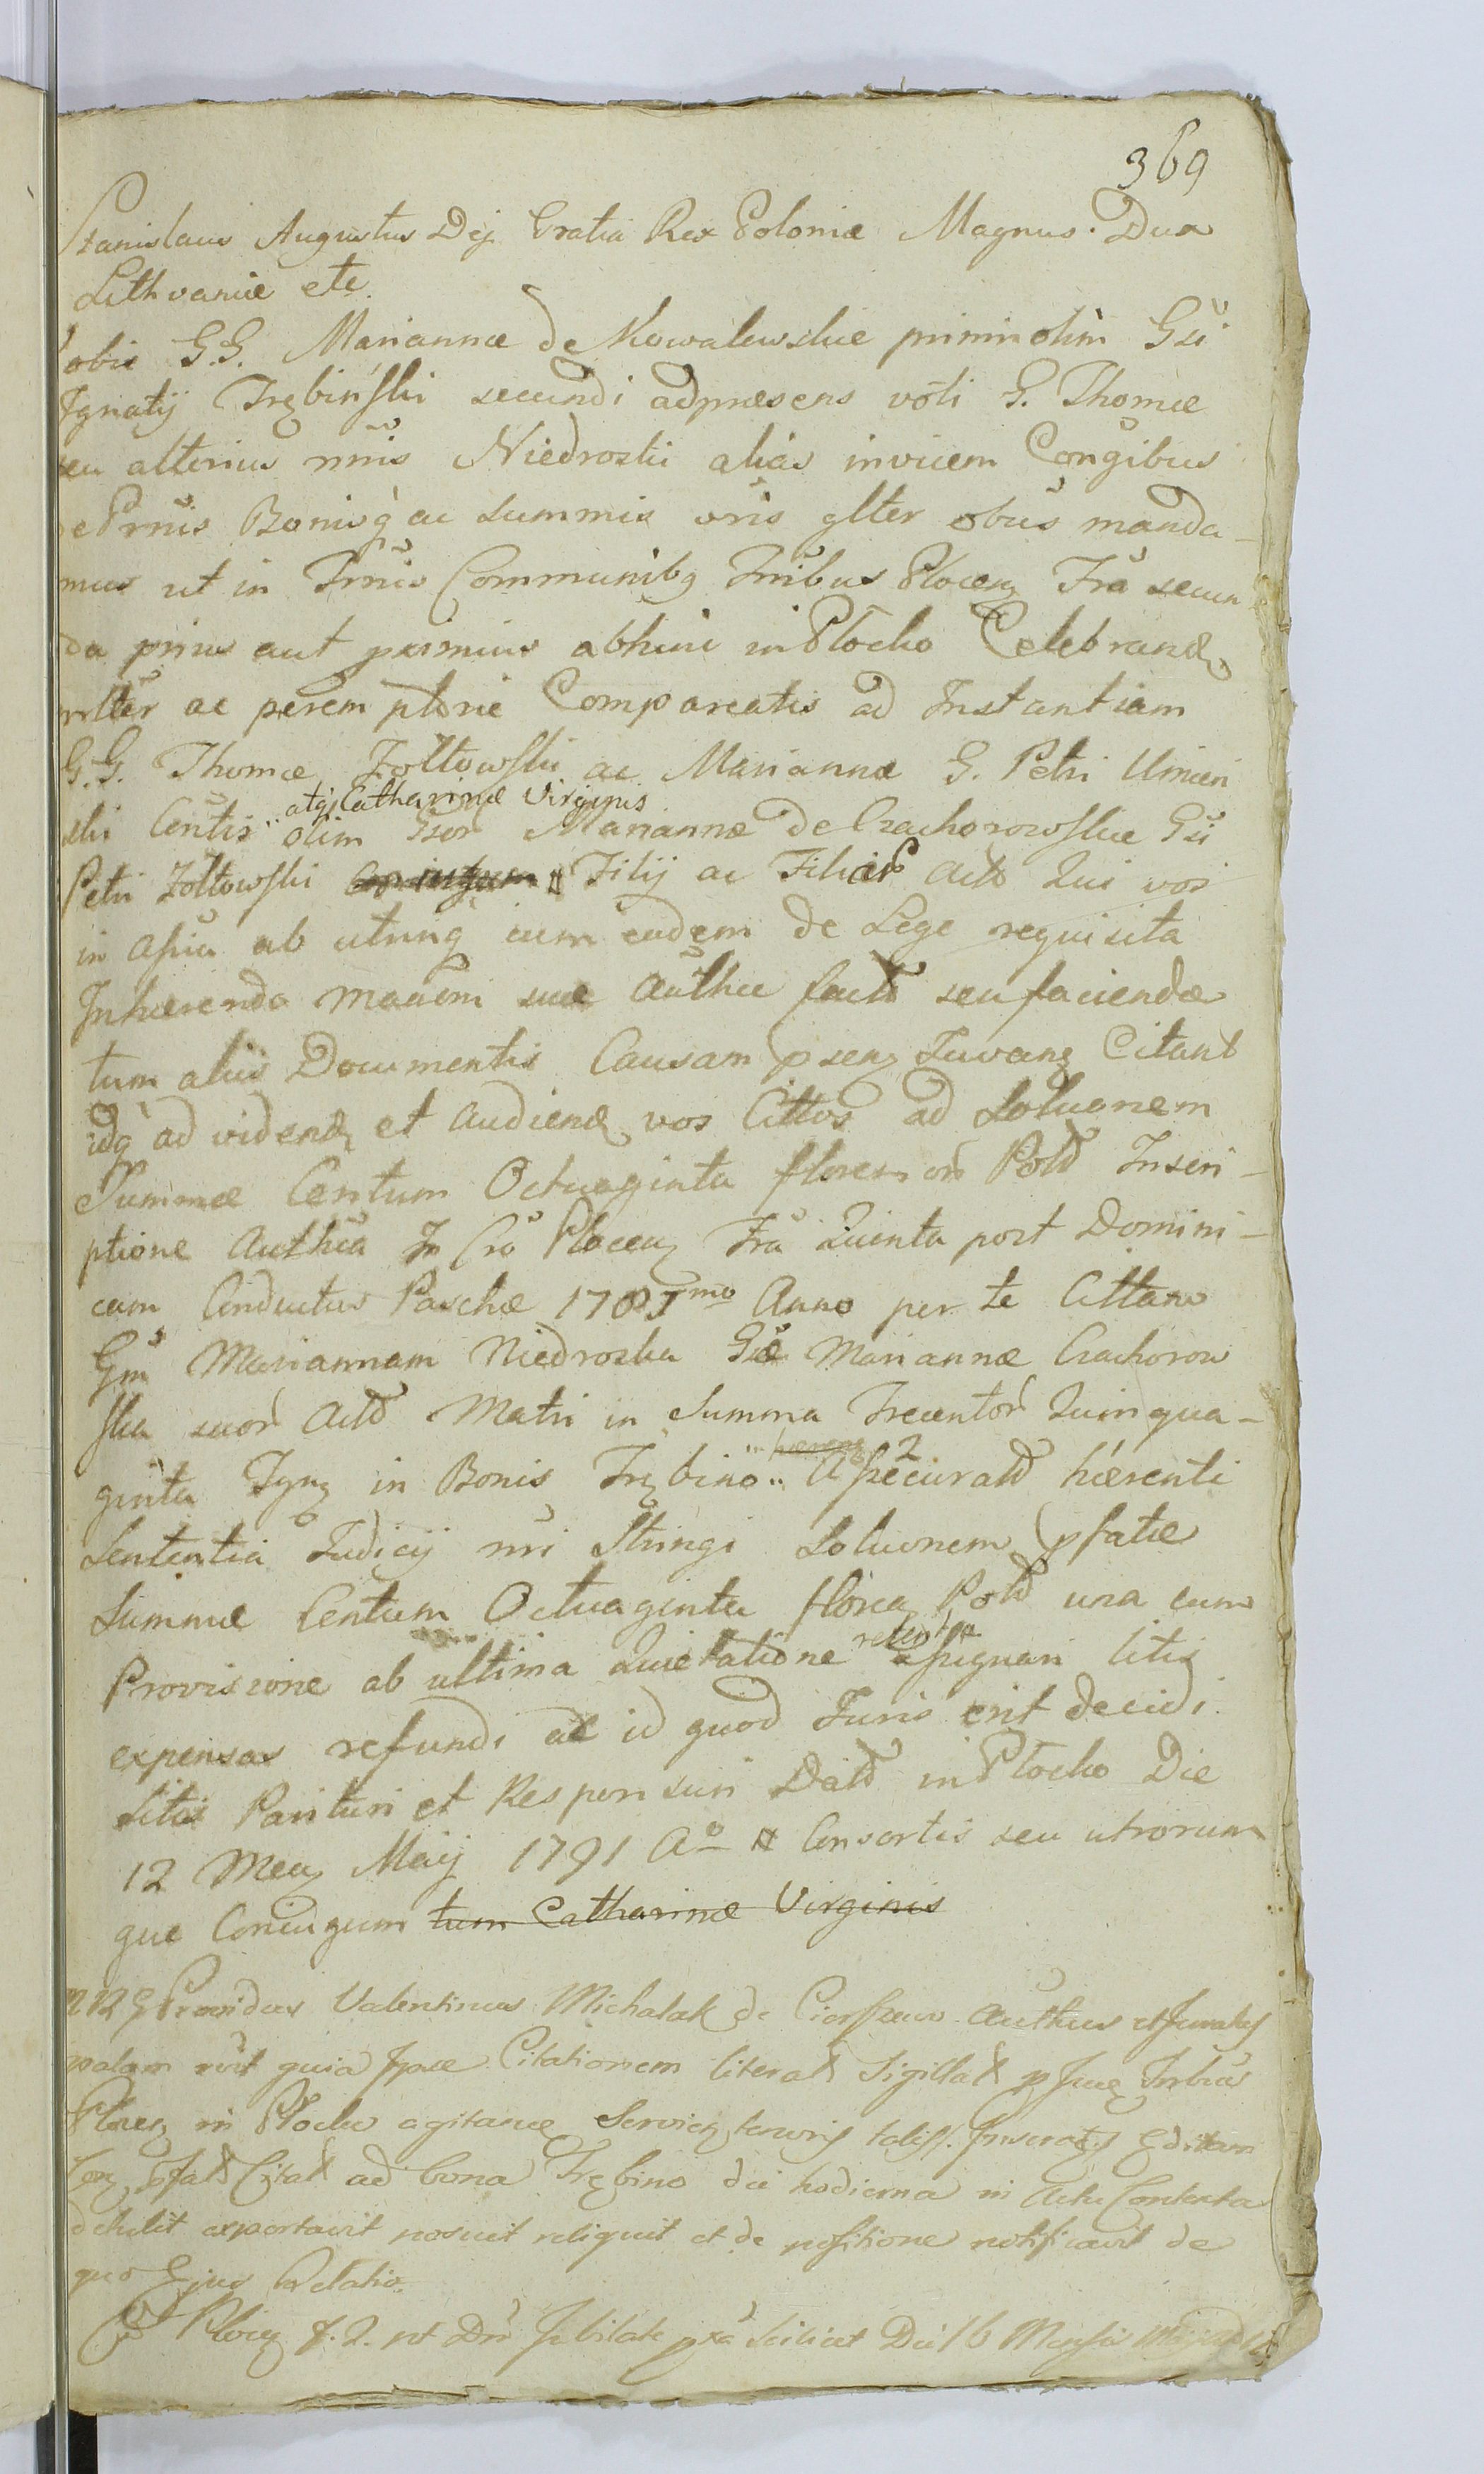 369
Stanislaus Augustus Dej Gratia Rex Poloniæ Magnus Dux
Lithvaniæ etc.
obis G.G. Mariannæ de Kowalewskie primi olim Gsi
Ignatij Trębinski secundi adpræsens voti G. Thomæ
seu alterius nnis Niedroski alias invicem Conjgibus
de Prnis Bonisq ac summis vris glter obus manda-
mus ut in Trnis Communibq Tribus Plocen Fra secun
da prius aut proxmius abhinc in Płocko Celebrand
rlter ac peremptorie Compareatis ad Instantiam
G.G. Thomæ Zołtowski ac Mariannæ G. Petri Umien
ski Contis atq Catharinæ Virginis olim Gsor Mariannæ de Czachorowskie Gsi
Petri Zołtowski Filij ac Filiar Actt Qui vos
in assia ab utrinq cum eadem de Lege requisita
Inhærendo maneni suæ Authce factt seu faciendæ
tum aliis Documentis Causam psen Juvang Citant
idq ad videnđ et audienđ vos Cittos ad Soluonem
Summæ Centum Octuaginta floren or Poltt Inscri-
ptione Authca In Cro Plocen Fra Quinta post Domini-
cam Conductus Paschæ 1785mo Anno per te Cittam
Gm Mariannam Niedroska Gsæ Mariannæ Czachorow
ska suor Actt Matri in Summa Trecentor Quinqua-
ginta Tynf in Bonis Trębino Assecuratt hærenti
Sententia Judicij nri Stringi Soluonem pfatæ
Summæ Centum Octuaginta floren Poltt una cum
Provisione ab ultima Quietatione retenta assignari litis
expensas refundi ac id quod Juris erit decidi.
Sitis Parituri et Responsuri Datt in Płocko Die
12 Men Maij 1791 Ao # Consortis seu utrorum
que Conjugum tum Catharinæ Virginis
Providus Valentinus Michalak de Authus et Juratus
palam rvit quia Ipse Citationem literatt Sigillatt
Plocen in Płocko agitand Editam
pfatt Citatt ad bona Trębino die hodierna in Actu Contenta
detulit exportavit posuit reliquit et de positione notificavit de
quo Ejus Relatio.
Plocen f. 2. pt Dm Jubilate pxa scilicet Die 16 Mensis Maij